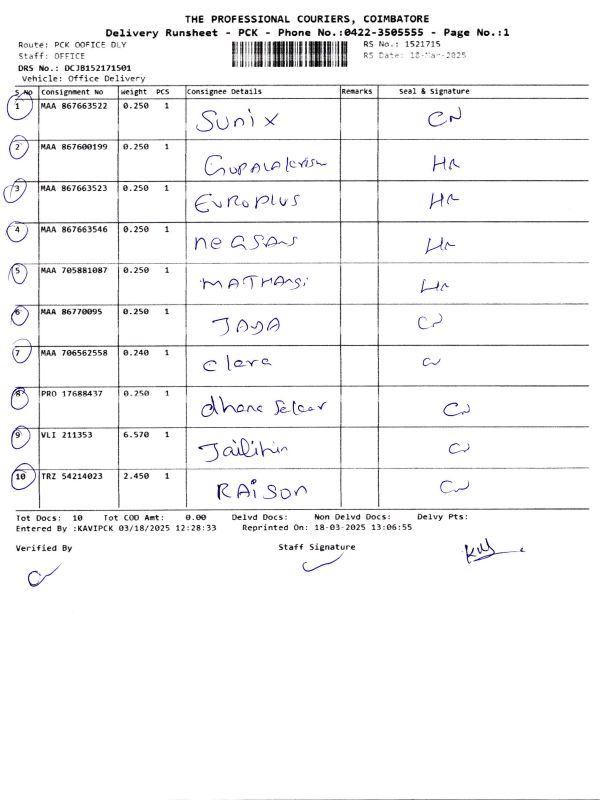 THE PROFESSIONAL COURIERS, COIMBATORE
Delivery Runsheet - PCK - Phone No.:0422-3505555 - Page No.:1
Route: PCK OOFICE DLY RS No.: 1521715
Staff: OFFICE RS Date: 18-Mar-2025
DRS No.: DCJB152171501
Vehicle: Office Delivery
S.No Consignment No Weight PCS Consignee Details Remarks Seal & Signature
1 MAA 867663522 0.250 1 Sunix CN
2 MAA 867600199 0.250 1 HR
3 MAA 867663523 0.250 1 EUROPLUS HR
4 MAA 867663546 0.250 1 HR
5 MAA 705881087 0.250 1 MATHANgi HR
6 MAA 86770095 0.250 1 JAYA CN
7 MAA 706562558 0.240 1 Clera CN
8 PRO 17688437 0.250 1 dhana Sekar CN
9 VLI 211353 6.570 1 CN
10 TRZ 54214023 2.450 1 RAiSON CN
Tot Docs: 10 Tot COD Amt: 0.00 Delvd Docs: Non Delvd Docs: Delvy Pts:
Entered By :KAVIPCK 03/18/2025 12:28:33 Reprinted On: 18-03-2025 13:06:55
Verified By Staff Signature